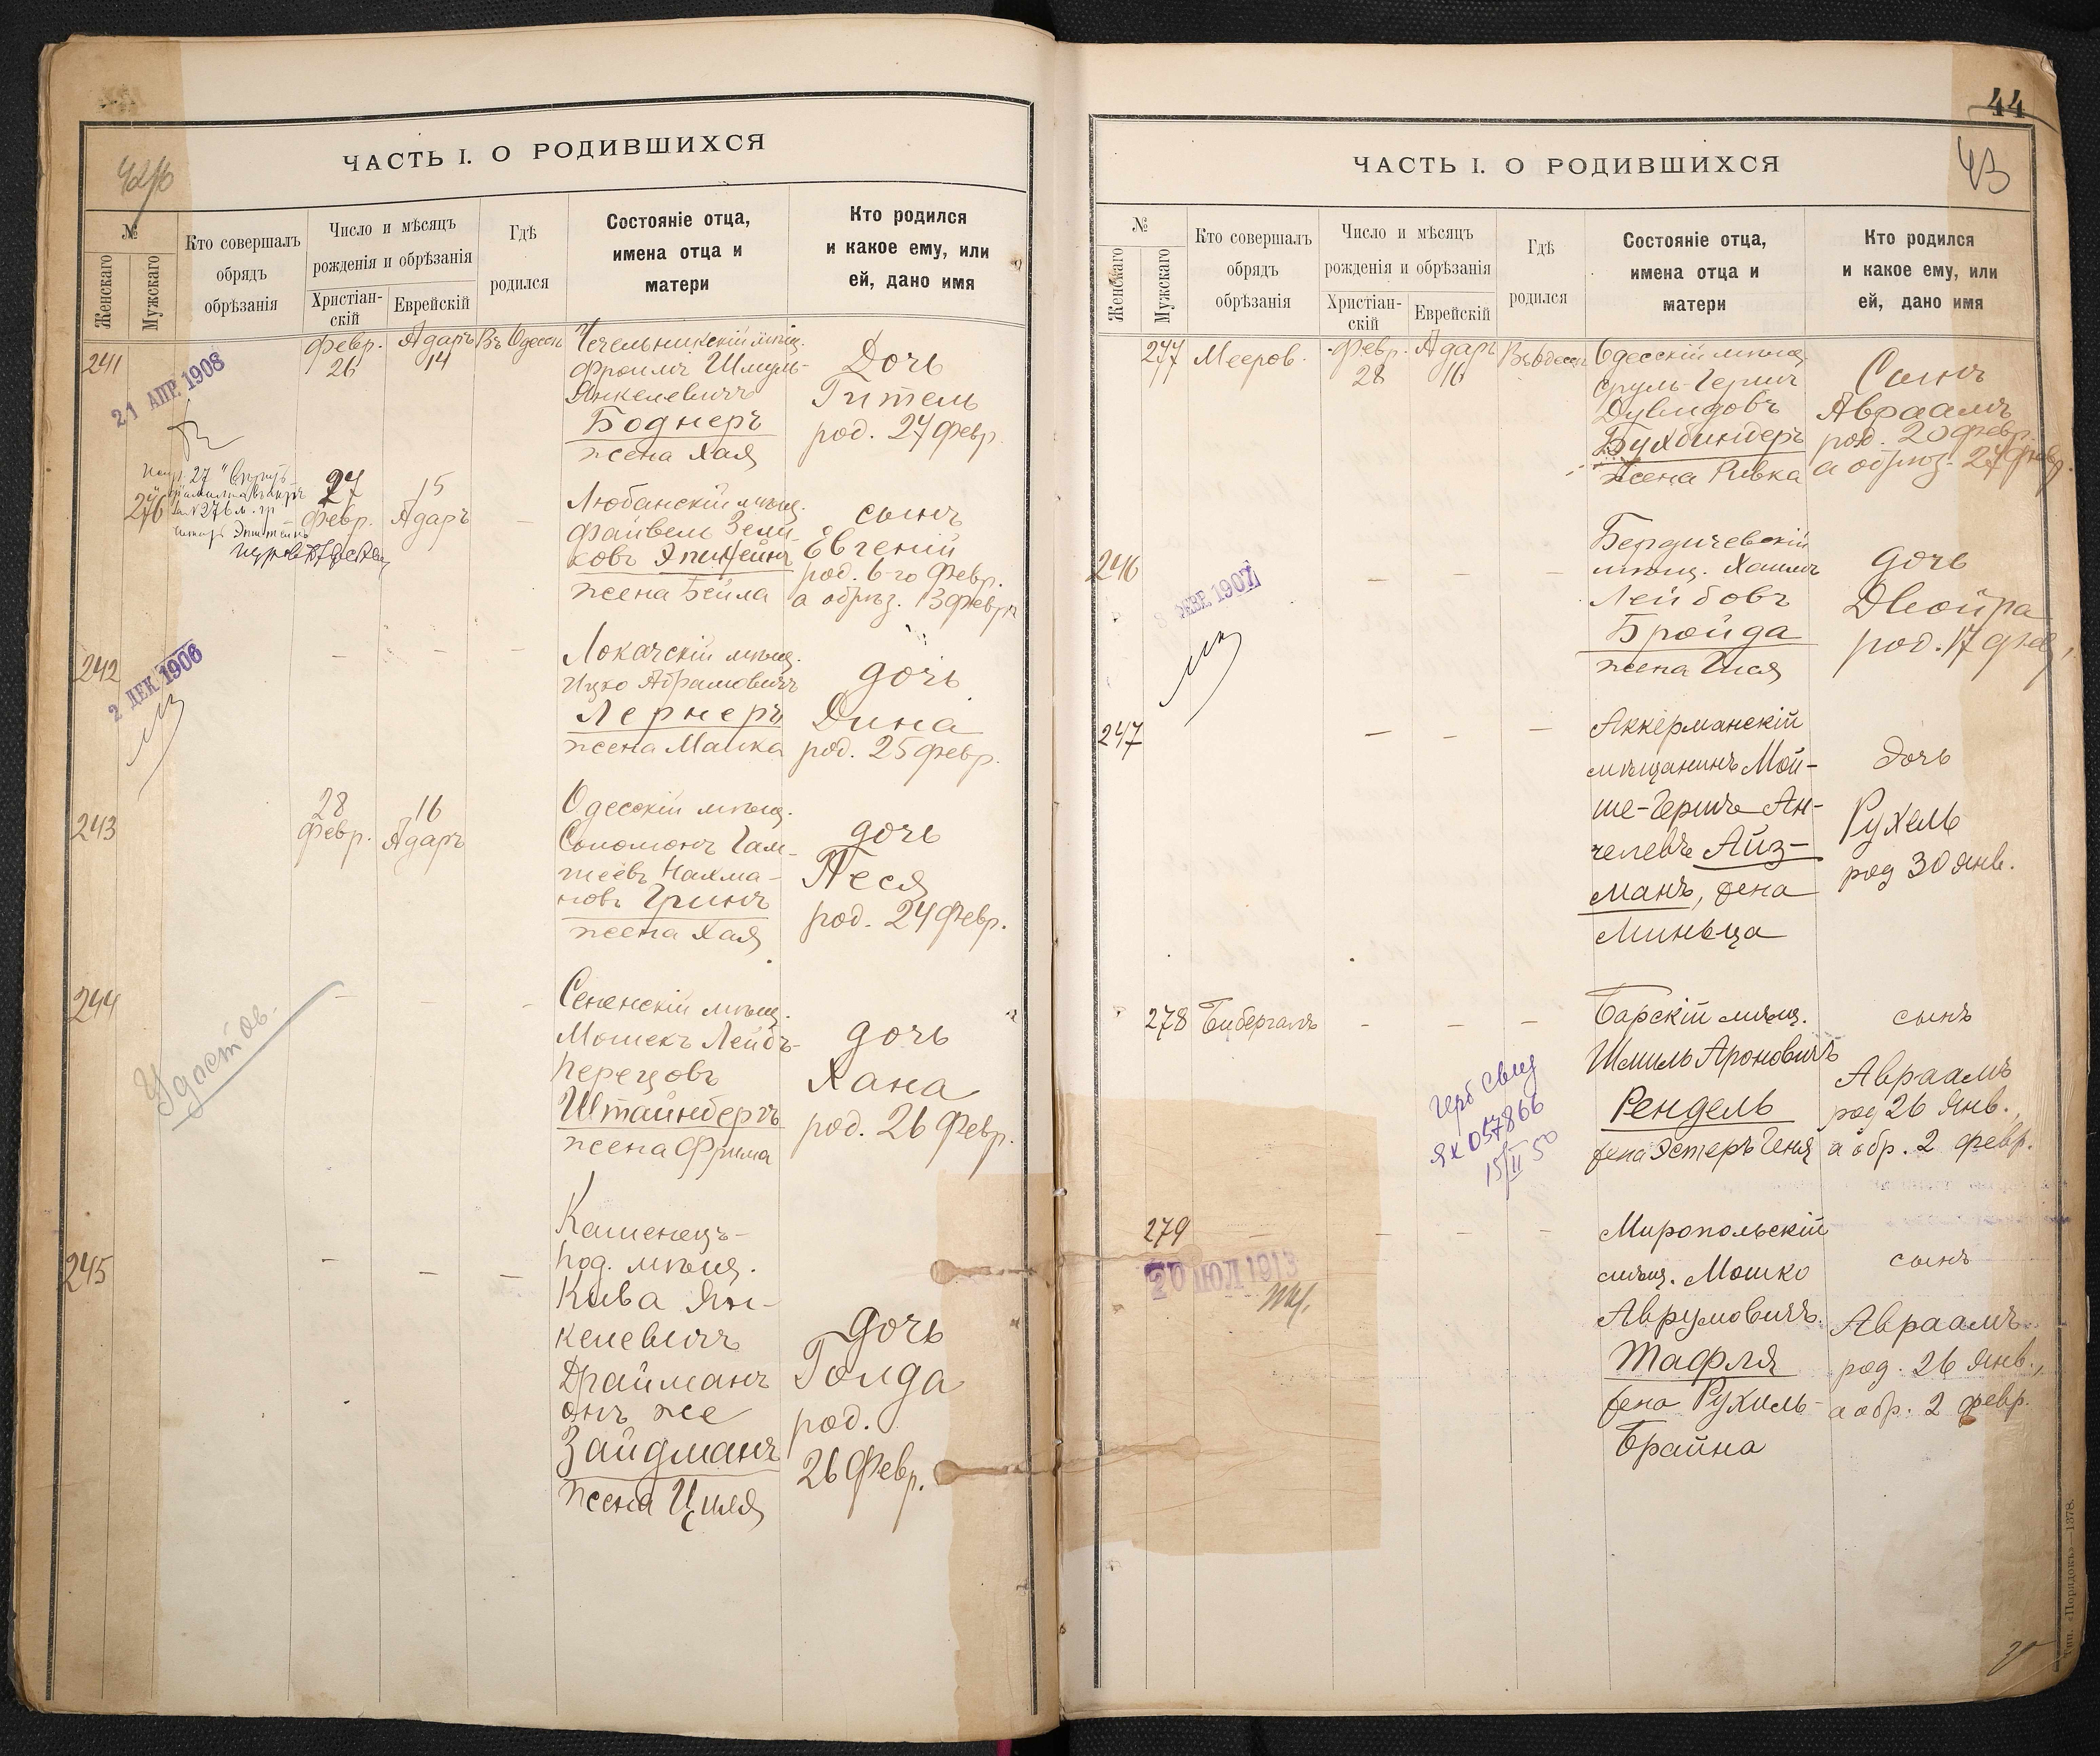 ЧАСТЬ I. О РОДИВШИХСЯ
№
Женскаго
Мужскаго
Кто совершалъ
обрядъ
обрѣзанія
Число и мѣсяцъ
рожденія и обрѣзанія
Христіан-
скій
Еврейскій
Гдѣ
родился
Состояніе отца,
имена отца и
матери
Кто родился
и какое ему, или
ей, дано имя
241
21 АПР. 1908
Февр.
26
Адаръ
14
Въ Одессѣ
Чечельницкій мѣщ.
Фроимъ Шмуль-
Янкелевичъ
Боднеръ
жена Хая
Дочь
Гитель
род. 24 февр.
276
27
Февр.
15
Адаръ
–
Любанскій мѣщ.
Файвель Зели-
ковъ Эпштейнъ
жена Бейла
сынъ
Евгеній
род. 6-го Февр.
а обрѣз. 13 февр.
242
2 ДЕК 1906
–
–
–
Локачскій мѣщ.
Ицко Абрамовичъ
Лернеръ
жена Малка
дочь
Дина
род. 25 февр.
243
28
Февр.
16
Адаръ
Одесскій мѣщ.
Соломонъ Гам-
шеевъ Нахма-
новъ Гринъ
жена Хая
дочь
Песя
род. 24 Февр.
244
Удостов.
–
–
–
Сененскій мѣщ.
Мошекъ Лейбъ-
Перецовъ
Штайнбергъ
жена Фрима
дочь
Хана
род. 26 Февр.
245
–
–
–
Каменецъ-
Под. мѣщ.
Кива Ян-
келевичъ
Драйманъ
онъ же
Зайдманъ
жена Циля
дочь
Голда
род.
26 Февр.
44
43
ЧАСТЬ I. О РОДИВШИХСЯ
№
Женскаго
Мужскаго
Кто совершалъ
обрядъ
обрѣзанія
Число и мѣсяцъ
рожденія и обрѣзанія
Христіан-
скій
Еврейскій
Гдѣ
родился
Состояніе отца,
имена отца и
матери
Кто родился
и какое ему, или
ей, дано имя
277
Мееров.
Февр.
28
Адаръ
16
Въ Одессѣ
Одесскій мѣщ.
Сруль-Гершъ
Дувидовъ
Бухбиндеръ
жена Ривка
Сынъ
Авраамъ
род. 20 февр.
а обрѣз. 27 февр.
246
1907
–
–
–
Бердичевскій
мѣщ. Хаимъ
Лейбовъ
Бройда
жена
дочь
Двойра
род. 17 фев.
247
–
–
–
Аккерманскій
мѣщанинъ Мой-
ше-Гершъ Ан-
челевъ Айз-
манъ, жена
Миньца
дочь
Рухель
род 30 Янв.
278
Бибергалъ
–
–
–
Барскій мѣщ.
Шмиль Ароновичъ
Рендель
жена Эстеръ Геня
сынъ
Авраамъ
род 26 Янв.,
а обр. 2 февр.
Герб свид
ЯХ 057866
15/II 50
279
20 ІЮЛ 1913
–
–
–
–
Миропольскій
мѣщ. Мошко
Аврумовичъ
Тафля
жена Рухиль-
Брайна
сынъ
Авраамъ
род. 26 Янв.,
а обр. 2 февр.
Тип. «Порядокъ»—1378.